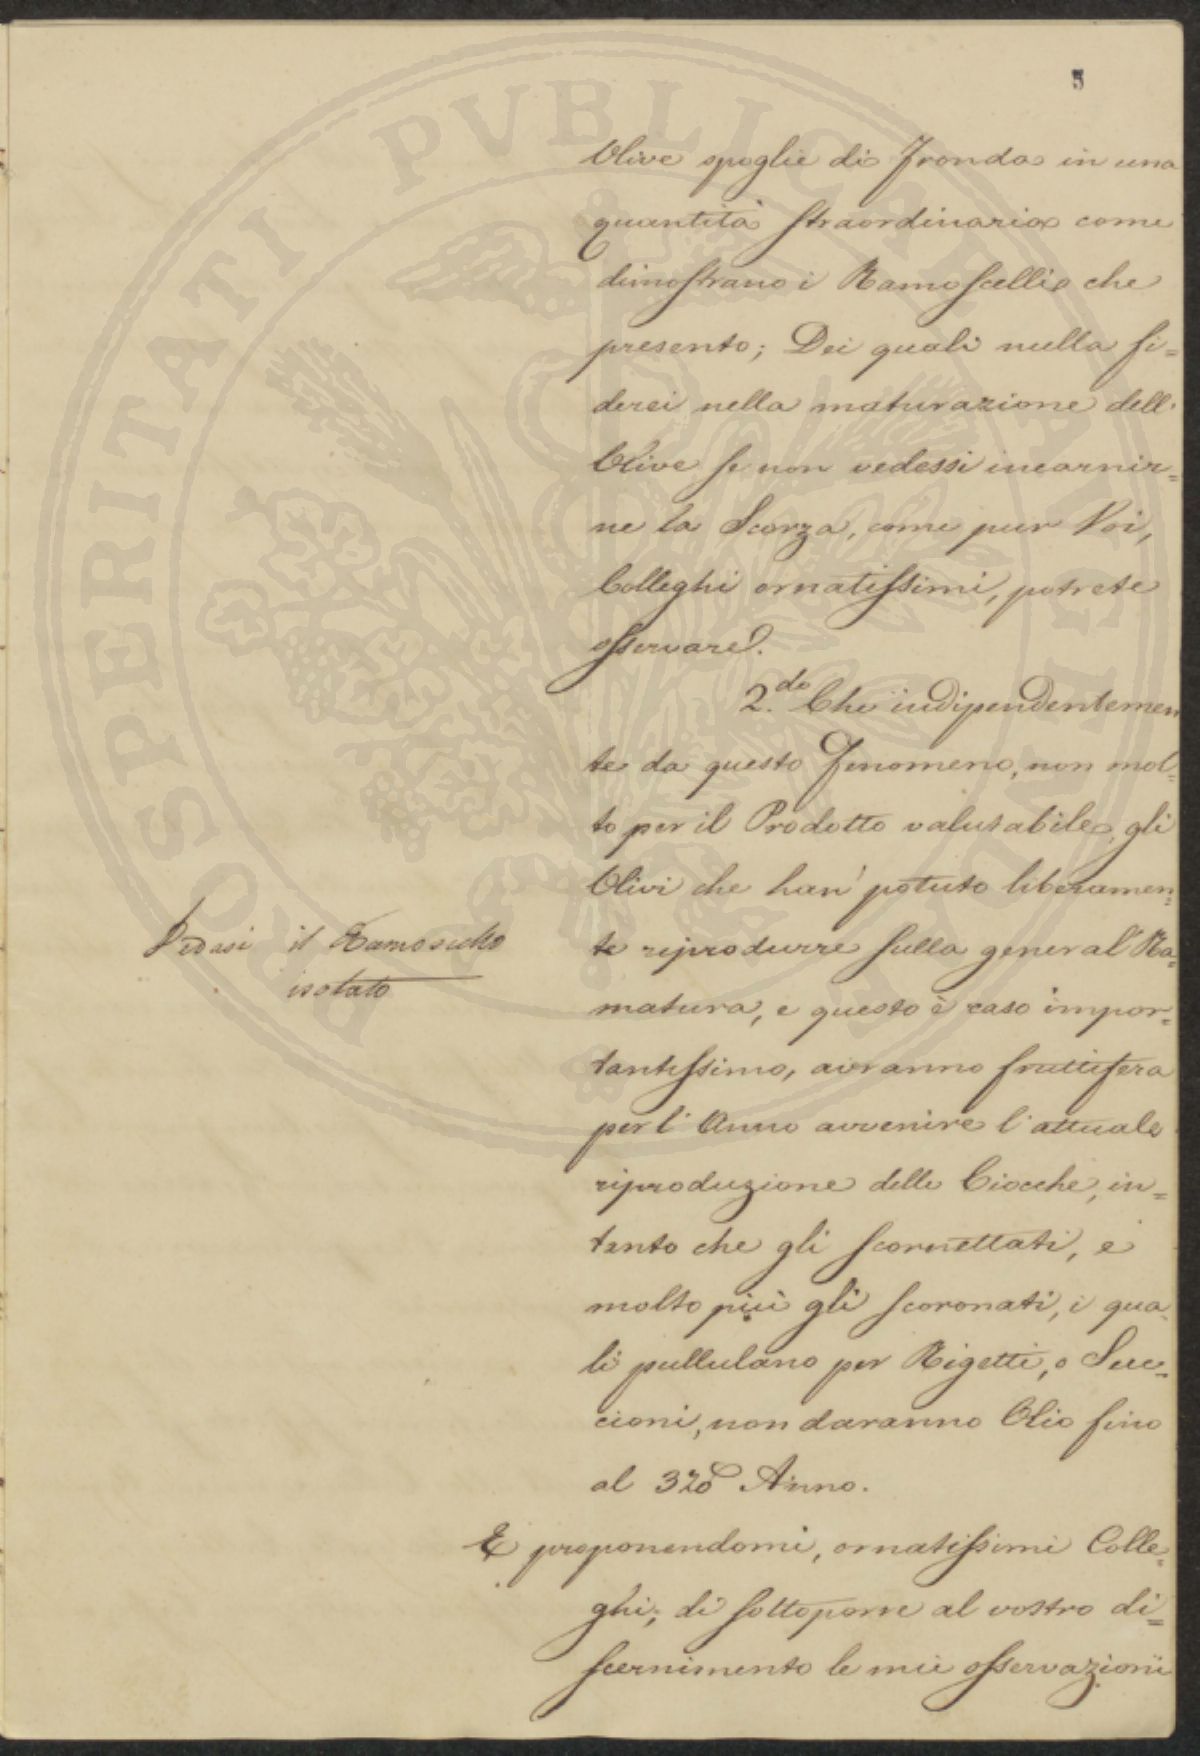 5
Olive spoglie di Fronda in una
quantità straordinaria come
dimostrano i Ramoscelli che
presento; Dei quali nulla fi=
derei nella maturazione dell'
Olive se non vedessi incarnir=
ne la Scorza, come pur Voi,
Colleghi ornatissimi, potrete
osservare.
2.do Che indipendentemen
te da questo Fenomeno, non mol=
to per il Prodotto valutabile, gli
Olivi che han' potuto liberamen=
te riprodurre sulla general Ra=
matura, e questo è caso impor=
tantissimo, avranno fruttifera
per l'Anno avvenire l'attuale
riproduzione delle Ciocche, in=
tanto che gli scornettati, e
molto più gli scoronati, i qua
li pullulano per Rigetti, o Suc=
cioni, non daranno Olio fino
al 3zo Anno.
E proponendomi, ornatissimi Colle=
ghi, di sottoporre al vostro di=
scernimento le mie osservazioni
Vedasi il Ramoscello
isolato
PROSPERITATI PVBLICAE AVGENDAE